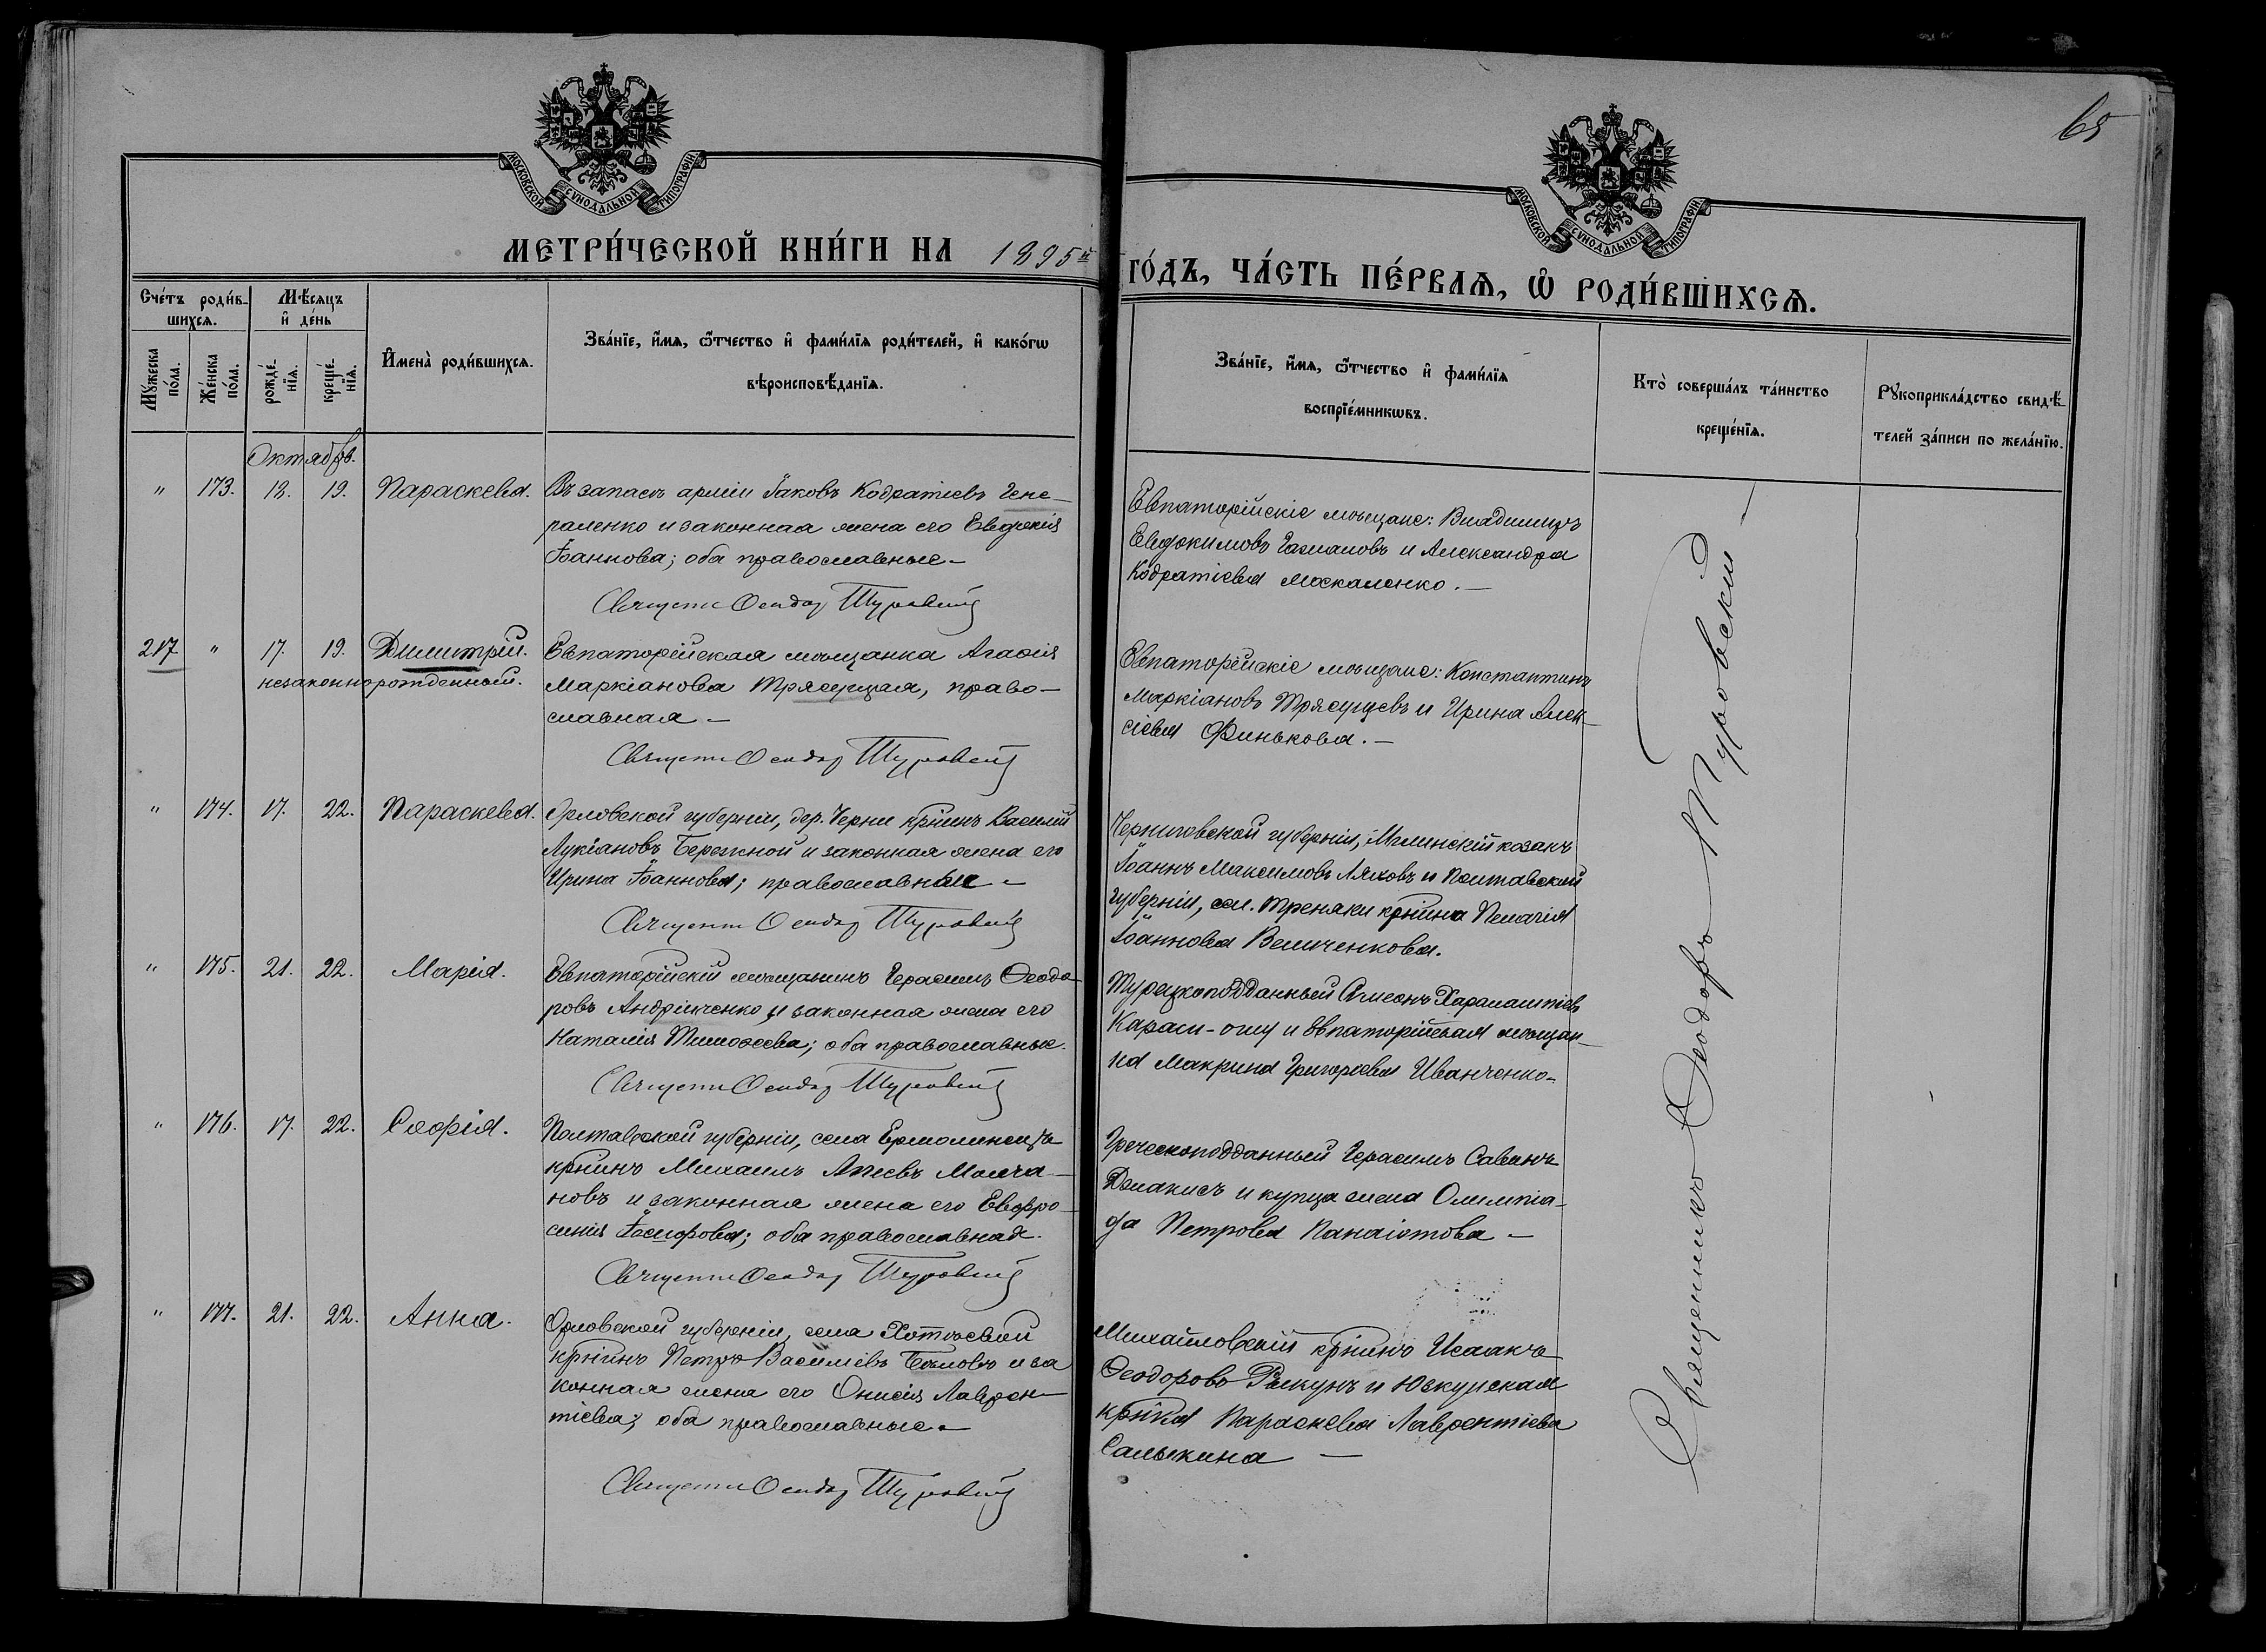 65
МОСКОВСКОЙ СѴНОДАЛЬНОЙ ТИПОГРАФІИ
МОСКОВСКОЙ СѴНОДАЛЬНОЙ ТИПОГРАФІИ
МЕТРИ́ЧЕСКОЙ КНИ́ГИ НА 1895й
ГО́ДЪ, ЧА́СТЬ ПЕ́РВАѦ, Ѡ҆ РОДИ́ВШИХСѦ.
Сче́тъ роди́в-
шихсѧ.
Мꙋ́жеска по́ла.
Же́нска по́ла.
Мѣ́сѧцъ
и҆ де́нь
рожде́-
нїѧ.
креще́-
нїѧ.
И҆мена̀ роди́вшихсѧ.
Зва́нїе, и҆́мѧ, ѻ҆́тчество и҆ фами́лїѧ роди́телей, и҆ како́гѡ
вѣроисповѣ́данїѧ.
Зва́нїе, и҆́мѧ, ѻ҆́тчество и҆ фами́лїѧ
воспрїе́мникѡвъ.
Кто̀ соверша́лъ та́инство
креще́нїѧ.
Рꙋкоприкла́дство свидѣ́-
телей за́писи по жела́нїю.
Октябрь.
" 173. 18. 19. Параскева.
Въ запасѣ арміи Іаковъ Кодратіевъ Гене-
раленко и законная жена его Евдокія
Іоаннова; оба православные –
Священ Ѳеодор Туровскій
Евпаторійскіе мѣщане: Владиміръ
Евдокимовъ и Александра
Кодратіева Москаленко. –
217 " 17. 19. Димитрій.
незаконнорожденный.
Евпаторійская мѣщанка Агаѳія
Маркіанова Трясущая, право-
славная –
Священ Ѳеодор Туровскій
Евпаторійскіе мѣщане: Константинъ
Маркіановъ Трясущевъ и Ирина Алек-
сіева Финькова. –
" 174. 17. 22. Параскева.
Орловской губерніи, дер. Черни кр̃нинъ Василій
Лукіановъ Бережной и законная жена его
Ирина Іоаннова; православные –
Священ Ѳеодор Туровскій
Черниговской губерніи, Мглинскій козакъ
Іоаннъ Максимовъ Ляховъ и Полтавской
губерніи, сел. Треняки кр̃нина Пелагія
Іоаннова Величенкова.
" 175. 21. 22. Марія.
Евпаторійскій мѣщанинъ Герасимъ Ѳеодо-
ровъ Андріиченко и законная жена его
Наталія Тимоѳеева; оба православные.
Священ Ѳеодор Туровскій
Турецкоподданный Симеонъ Харалампіевъ
Караш-оглу и Евпаторійская мѣщан-
ка Макрина Григорьева Иванченко –
" 176. 17. 22. Софія.
Полтавской губерніи, села
кр̃нинъ Михаилъ Молча-
новъ и законная жена его Евфро-
синія Іосифова; оба православная.
Священ Ѳеодор Туровскій
Греческоподданный Герасимъ
и купца жена Олимпіа-
да Петрова Панаіотова –
" 177. 21. 22. Анна.
Орловской губерніи, села
кр̃нинъ Петръ Василіевъ Бѣловъ и за
конная жена его Онисія Лаврен-
тіева; оба православные –
Священ Ѳеодор Туровскій
Михайловскій кр̃нинъ Исаакъ
Ѳеодоровъ и
кр̃нка Параскева Лаврентіева
Салыкина –
Священникъ Ѳеодоръ Туровскій –